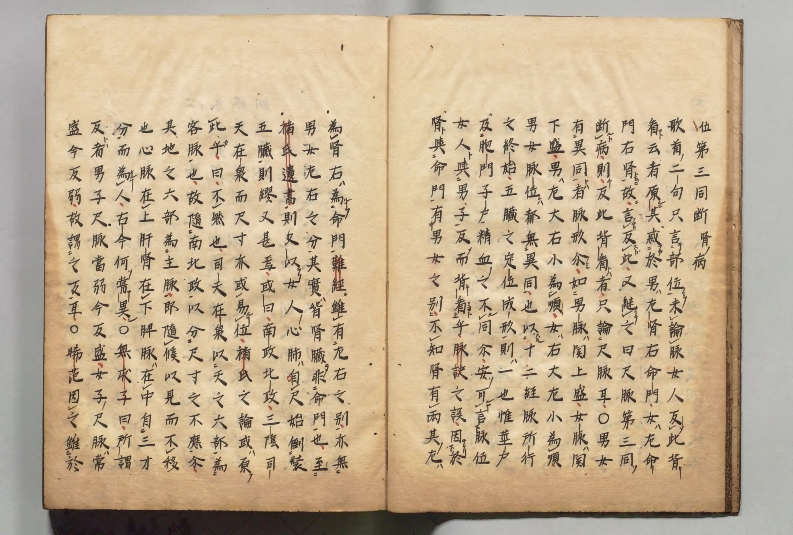 位第三同断腎病
歌首二句只言部位未論脉女人反此背
看云者原其惑於男左腎右命門女左命
門右腎故言反此又継之曰尺脉第三同
断病則反此背看者只論尺脉耳〇男女
有異同者脉形尒如男脉関上盛女脉関
下盛男左大右小為順女右大左小為順
男女脉位都無異同也以十二経脉所行
之終始五臓之定位成形則一也惟並戸
反胞門子戸精血之不同尒安可言脉位
女人與男子反而背看乎脉訣之誤因於
腎與命門有男女之別不知腎有両其左
為腎右為命門難経雖有左右之別亦無
男女左右之分其實皆腎臓非命門也至
楮氏遺書則又以女人心肺自尺始倒装
五臓則繆又甚焉或曰南政北政三陰司
天在泉而尺寸亦或易位楮氏之論或原
此乎曰不然也司天在泉以天之六部為
客脉也故随南北政以分尺寸之不應尒
其地之六部為主脉即随候以見而不移
也心脉在上肝腎在下脾脉在中自三才
分而為人右今何嘗異〇無求子曰所謂
反者男子尺脉當弱今反盛女子尺脉常
盛今反弱故謂之反耳〇帰范因之雖於